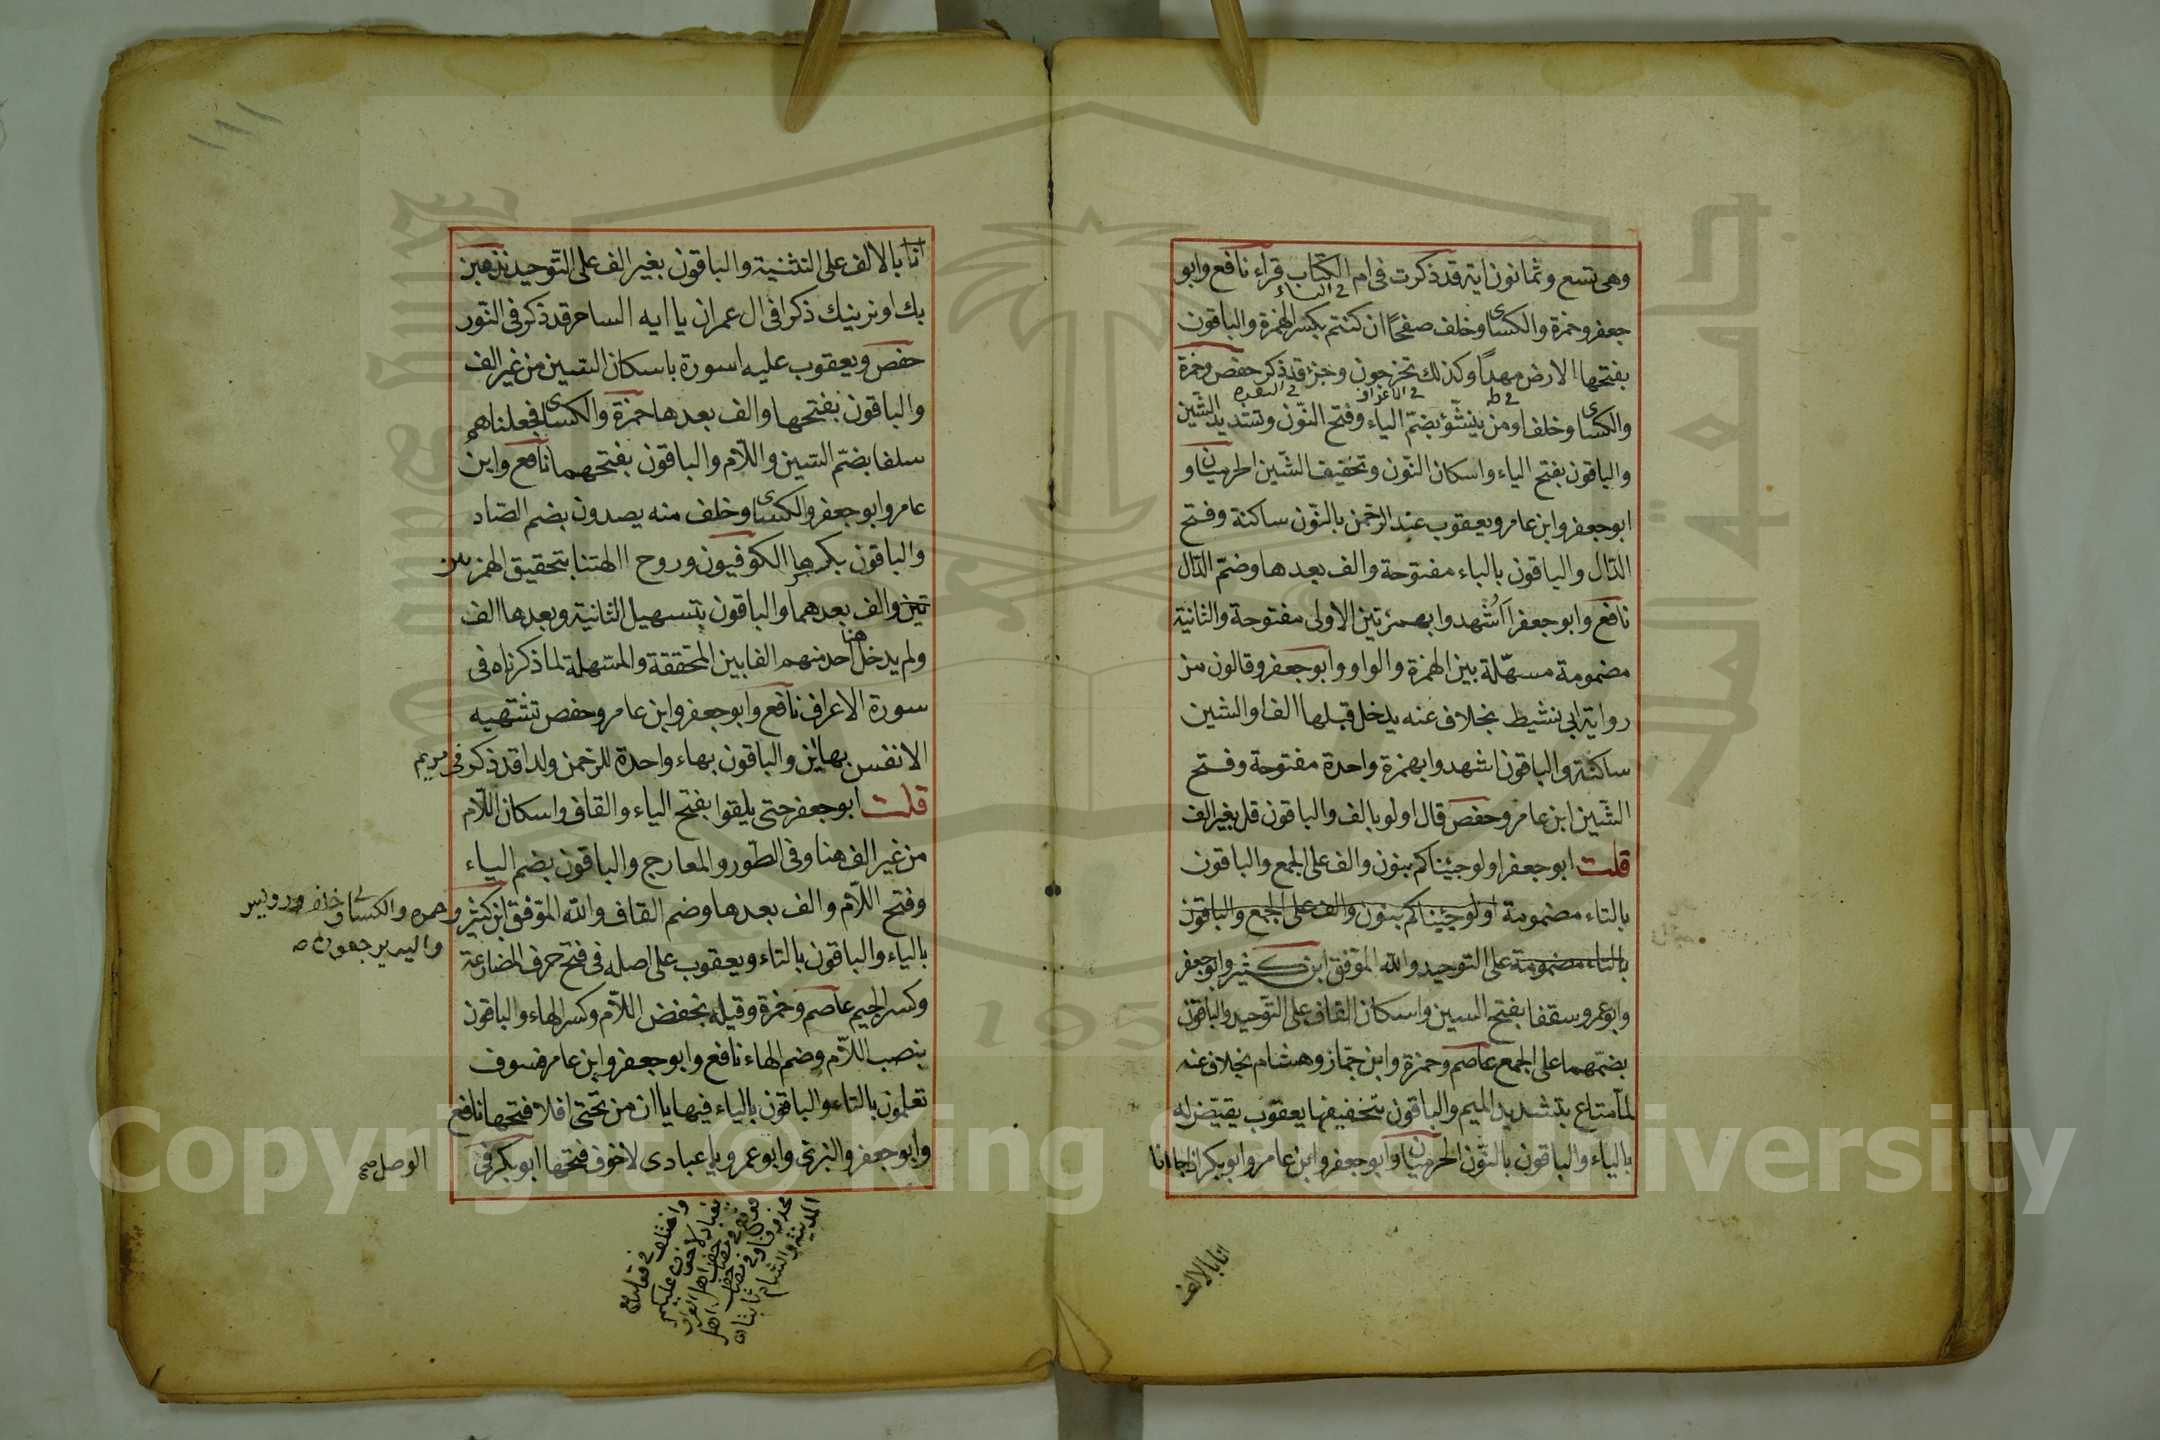 وهى تسع وثمانون اية قد ذكرت فى ام الكتاب قراء نافع وابو
جعفر وحمزة والكساى وخلف صفحا ان كنتم بكسر الهمزة والباقون
بفتحها الارض مهدا وكذلك تخرجون وجزؤ قد ذكر حفص وحمزة
والكساى وخلف اومن ينشؤ بضم الياء وفتح النون وتشديد الشين
والباقون بفتح الياء واسكان النون وتخفيف الشين الحرميان و
ابوجعفر وابن عامر ويعقوب عند الرحمن بالنون ساكنة وفتح
الدال والباقون بالباء مفتوحة والف بعدها وضم الدال
نافع وابوجعفر ااشهدوا بهمزتين الاولى مفتوحة والثانية
مضمومة مسهلة بين الهمزة والواو وابوجعفر وقالون من
رواية ابى نشيط بخلاف عنه يدخل قبلها الفا والشين
ساكنة والباقون اشهدوا بهمزة واحدة مفتوحة وفتح
الشين ابن عامر وحفص قال اولو بالف والباقون قل بغير الف
قلت ابوجعفر اولو جيئناكم بنون والف على الجمع والباقون
بالتاء مضمومة اولو جيئناكم بنون والف على الجمع والباقون
بالتاء مضمومة على التوحيد والله الموفق ابن كثير وابوجعفر
وابوعمرو سقفا بفتح السين واسكان القاف على التوحيد والباقون
بضمهما على الجمع عاصم وحمزة وابن جماز وهشام بخلاف عنه
لما متاع بتشديد الميم والباقون بتخفيفها يعقوب يقيض له
بالياء والباقون بالنون الحرميان وابوجعفر وابن عامر وابوبكر اذا جاانا
فى النساء
فى طه
فى الاعراف
فى البقرة
انا بالالف
١١١
انا بالالف على التثنية والباقون بغير الف على التوحيد نذهبن
بك اونرينك ذكرا فى ال عمران يا ايه الساحر قد ذكر فى النور
حفص ويعقوب عليه اسورة باسكان السين من غير الف
والباقون بفتحها والف بعدها حمزة والكساى فجعلناهم
سلفا بضم السين واللام والباقون بفتحهما نافع وابن
عامر وابوجعفر والكساى وخلف منه يصدون بضم الصاد
والباقون بكسرها الكوفيون وروح االهتنا بتحقيق الهمزتين
تين والف بعدهما والباقون بتسهيل الثانية وبعدها الف
ولم يدخل هنا احد منهم الفا بين المحققة والمسهلة لما ذكرناه فى
سورة الاعراف نافع وابوجعفر وابن عامر وحفص تشتهيه
الانفس بهاين والباقون بهاء واحدة للرحمن ولد اقد ذكر فى مريم
قلت ابوجعفر حتى يلقوا بفتح الياء والقاف واسكان اللام
من غير الف هنا وفى الطور والمعارج والباقون بضم الياء
وفتح اللام والف بعدها وضم القاف والله الموفق ابن كثير وحمزه والكساى وخلف ورويس
واليه يرجعون صح
بالياء والباقون بالتاء ويعقوب على اصله فى فتح حرف المضارعة
وكسر الجيم عاصم وحمزة وقيله بخفض اللام وكسر الهاء والباقون
بنصب اللام وضم الهاء نافع وابوجعفر وابن عامر فسوف
تعلمون بالتاء والباقون بالياء فيها ياان من تحتى افلا فتحها نافع
وابوجعفر والبزى وابوعمرو يا عبادى لاخوف فتحها ابوبكر فى
الوصل صح
Copyright © King Saud University
1957